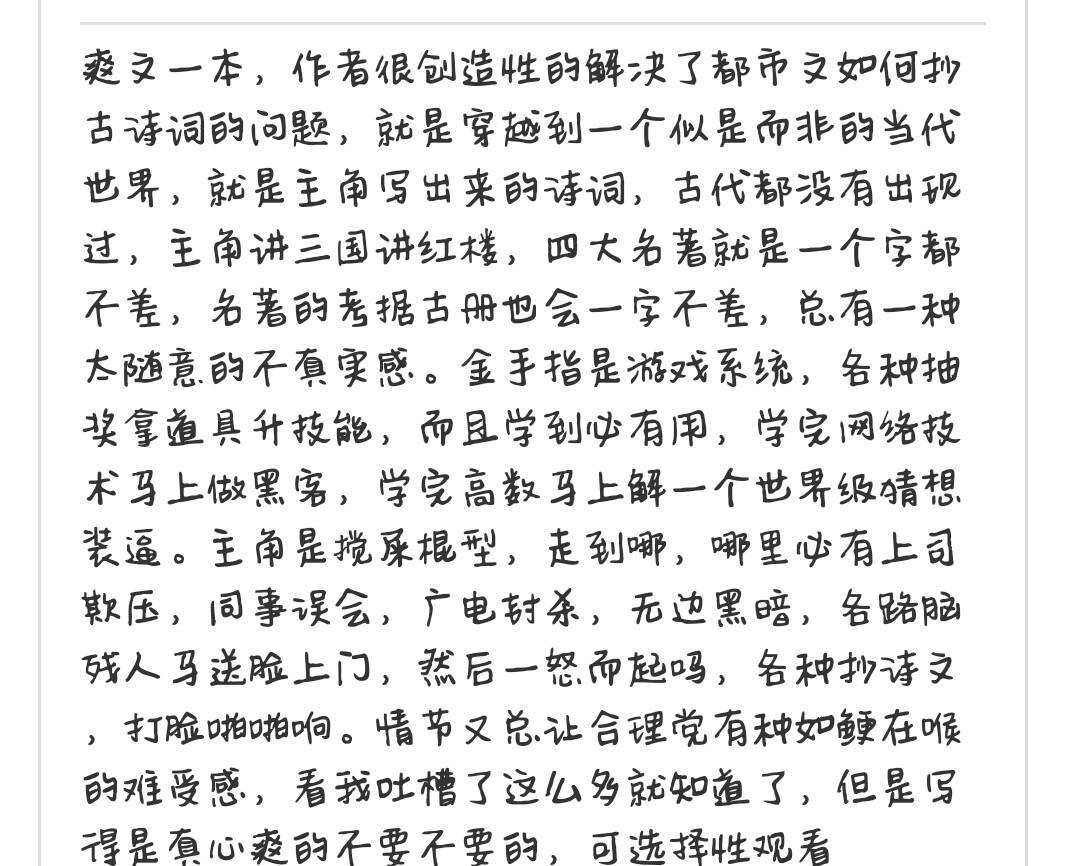 爽文一本，作者很创造性的解决了都市文如何抄
古诗词的问题，就是穿越到一个似是而非的当代
世界，就是主角写出来的诗词，古代都没有出现
过，主角讲三国讲红楼，四大名著就是一个字都
不差，名著的考据古册也会一字不差，总有一种
太随意的不真实感。金手指是游戏系统，各种抽
奖拿道具升技能，而且学到必有用，学完网络技
术马上做黑客，学完高数马上解一个世界级猜想
装逼。主角是搅屎棍型，走到哪，哪里必有上司
欺压，同事误会，广电封杀，无边黑暗，各路脑
残人马送脸上门，然后一怒而起吗，各种抄诗文
，打脸啪啪响。情节又总让合理党有种如鲠在喉
的难受感，看我吐槽了这么多就知道了，但是写
得是真心爽的不要不要的，可选择性观看